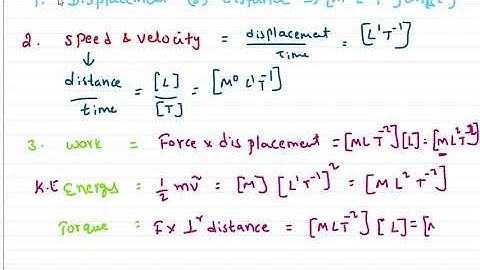 1. Displacement (or) distance = [M⁰ L¹ T⁰]
2. speed & velocity = displacement / Time = [L¹ T⁻¹]
↓
distance / time = [L] / [T] = [M⁰ L¹ T⁻¹]
3. work = Force x displacement = [MLT⁻²][L] = [ML²T⁻²]
K.E Energy = 1/2 mv² = [M] [L¹ T⁻¹]² = [M L² T⁻²]
Torque = F x ⊥ʳ distance = [MLT⁻²] [L] = [M